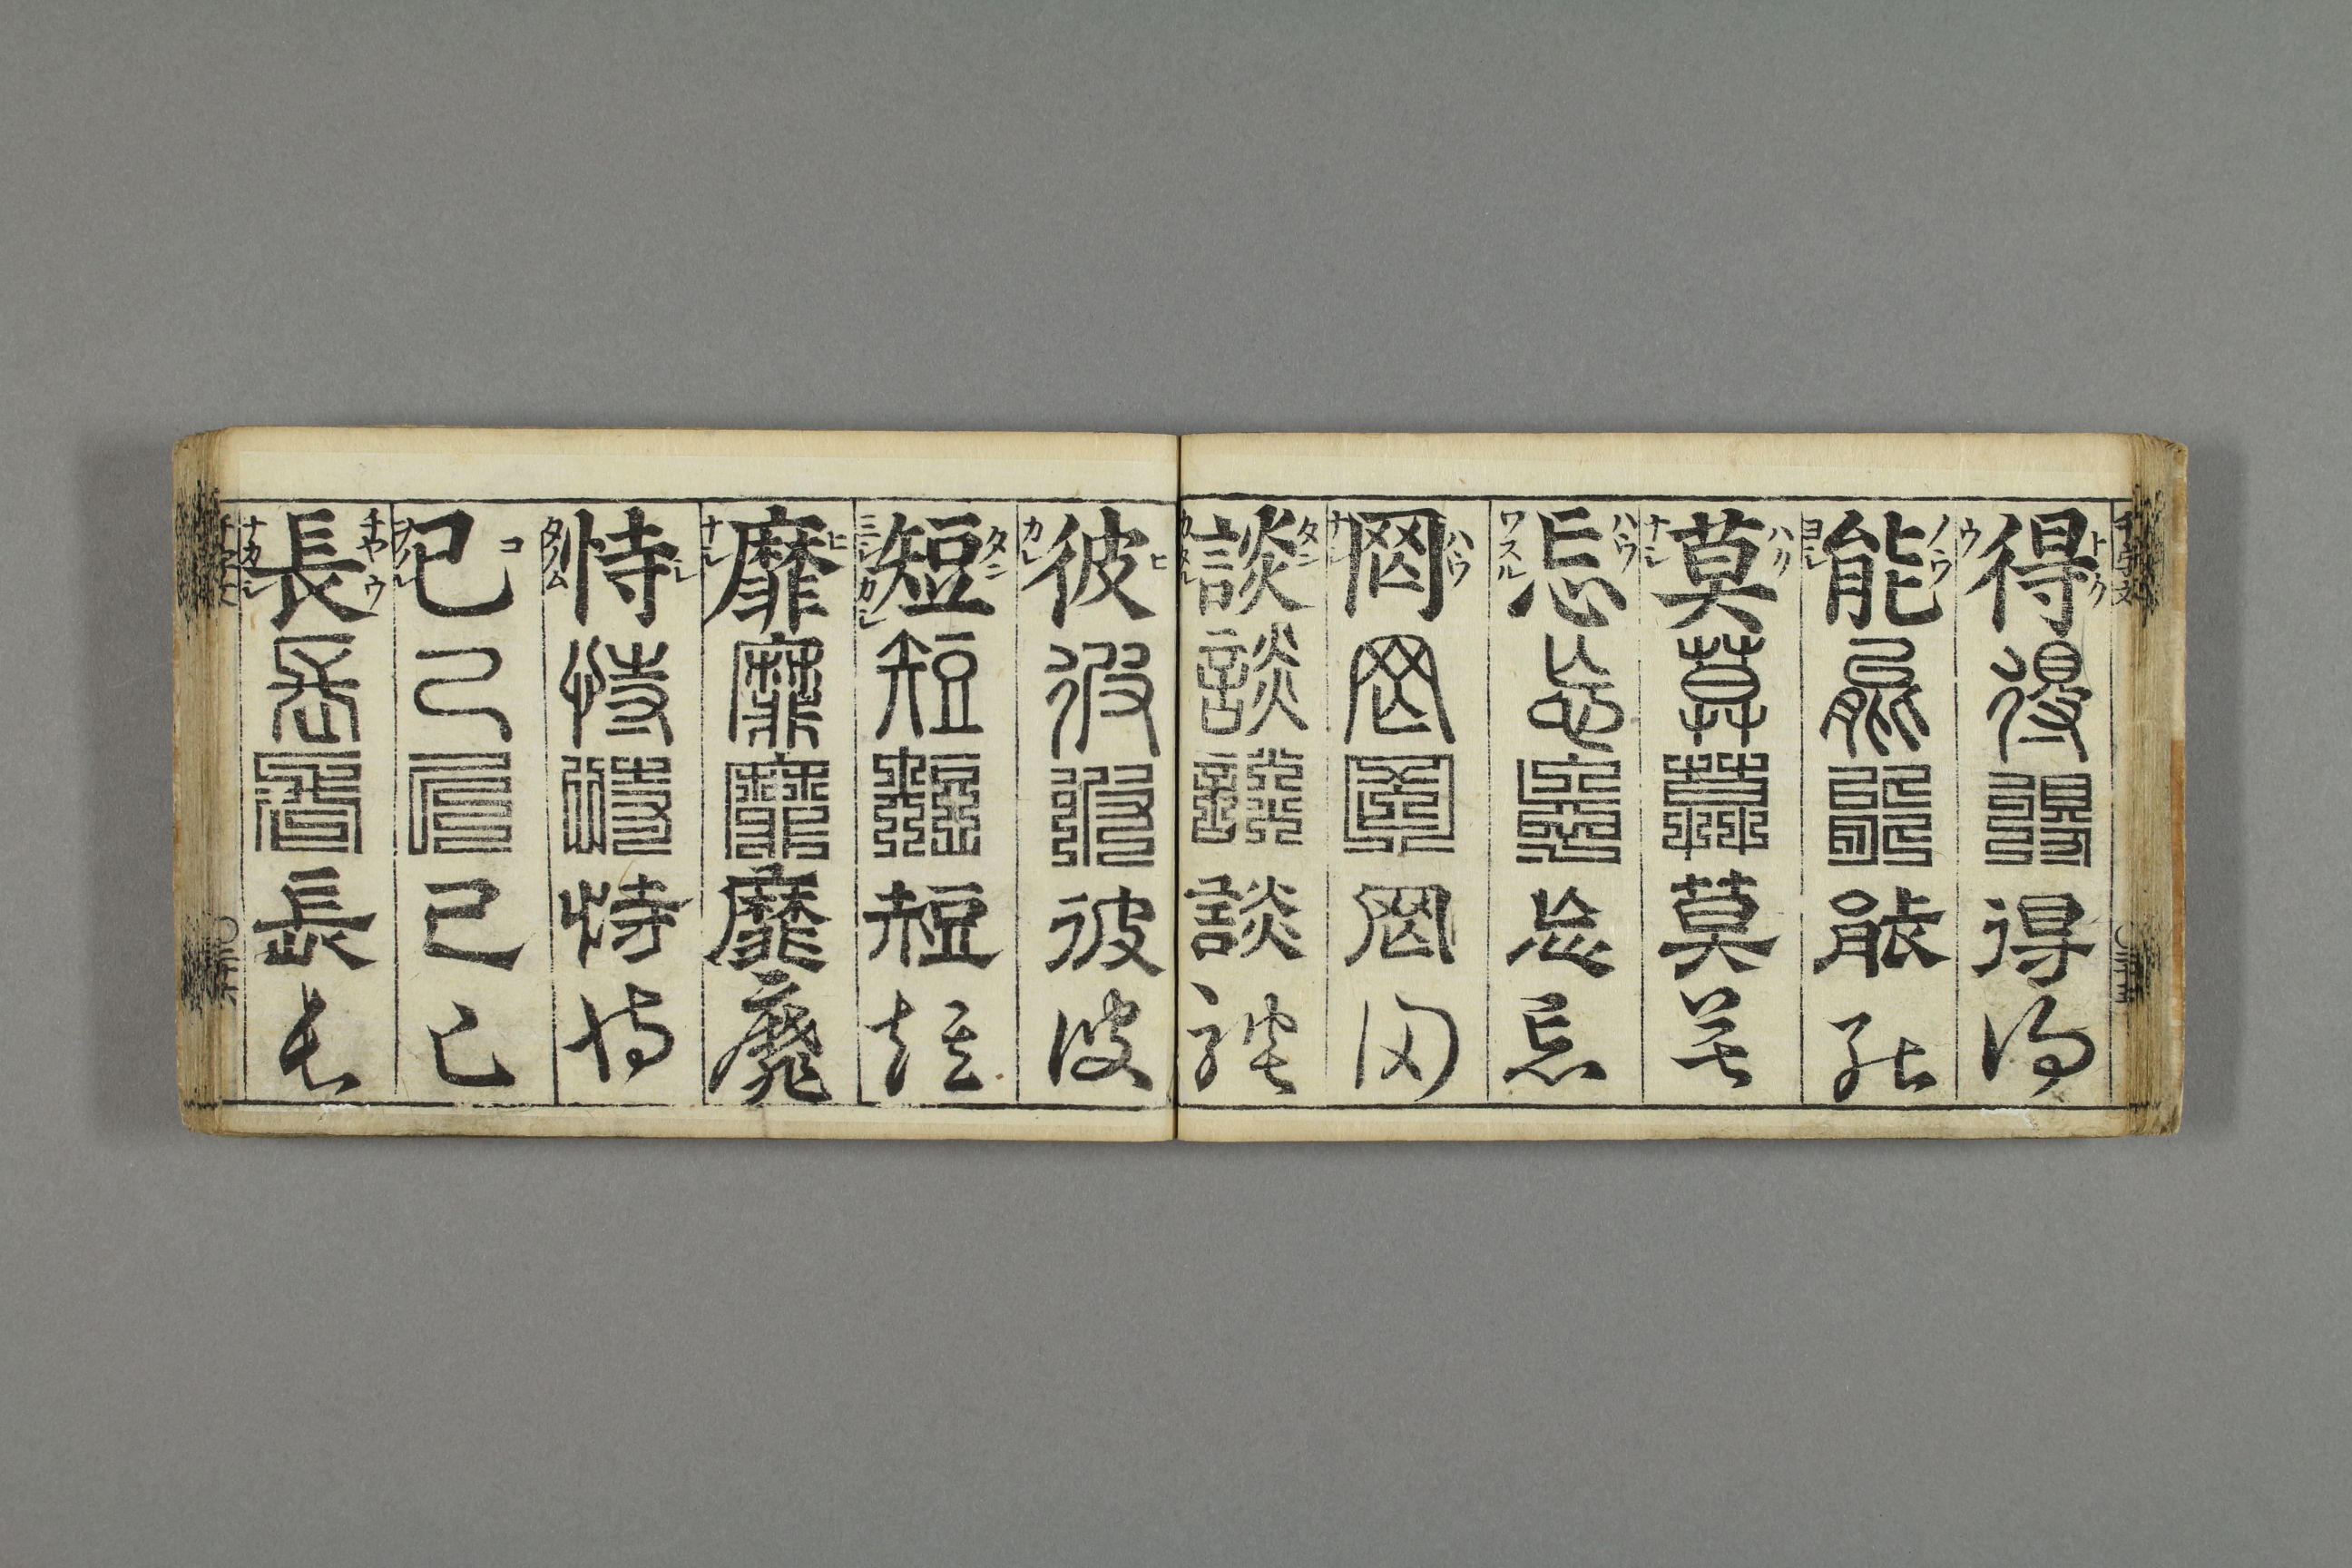 得得得得得
トク
ウ
能能能能能
ノウ
ヨシ
莫莫莫莫莫
ハク
ナシ
忘忘忘忘忘
ハウ
ワスル
罔罔罔罔罔
ハウ
ナシ
談談談談談
タン
カタル
彼彼彼彼彼
ヒ
カレ
短短短短短
タン
ミシカシ
靡靡靡靡靡
ヒ
ナシ
恃恃恃恃恃
シ
タノム
己己己己己
コ
長長長長長
チヤウ
ナカシ